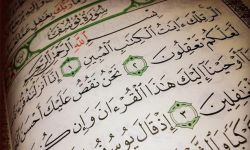 سُورَةُ يُوسُفَ
الٓرۚ تِلْكَ ءَايَٰتُ الْكِتَٰبِ الْمُبِينِ ١
لَّعَلَّكُمْ تَعْقِلُونَ ٢ نَحْنُ نَقُصُّ عَلَيْكَ أَحْسَنَ
أَوْحَيْنَآ إِلَيْكَ هَٰذَا الْقُرْءَانَ وَإِن
الْغَٰفِلِينَ ٣ إِذْ قَالَ يُوسُفُ